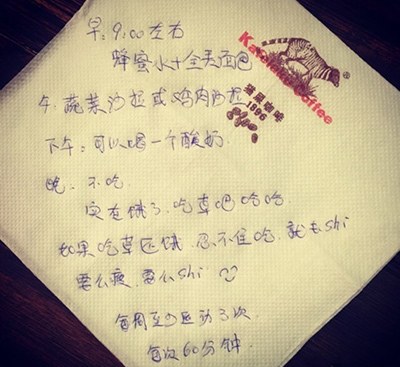 早：9:00左右
蜂蜜水+全麦面包
午：蔬菜沙拉或鸡肉沙拉
下午：可以喝一个酸奶
晚：不吃.
实在饿了，吃草吧哈哈.
如果吃草还饿，忍不住吃，就去shi
要么瘦，要么shi
每周至少运动3次
每次60分钟.
Coffee
咖啡
1896